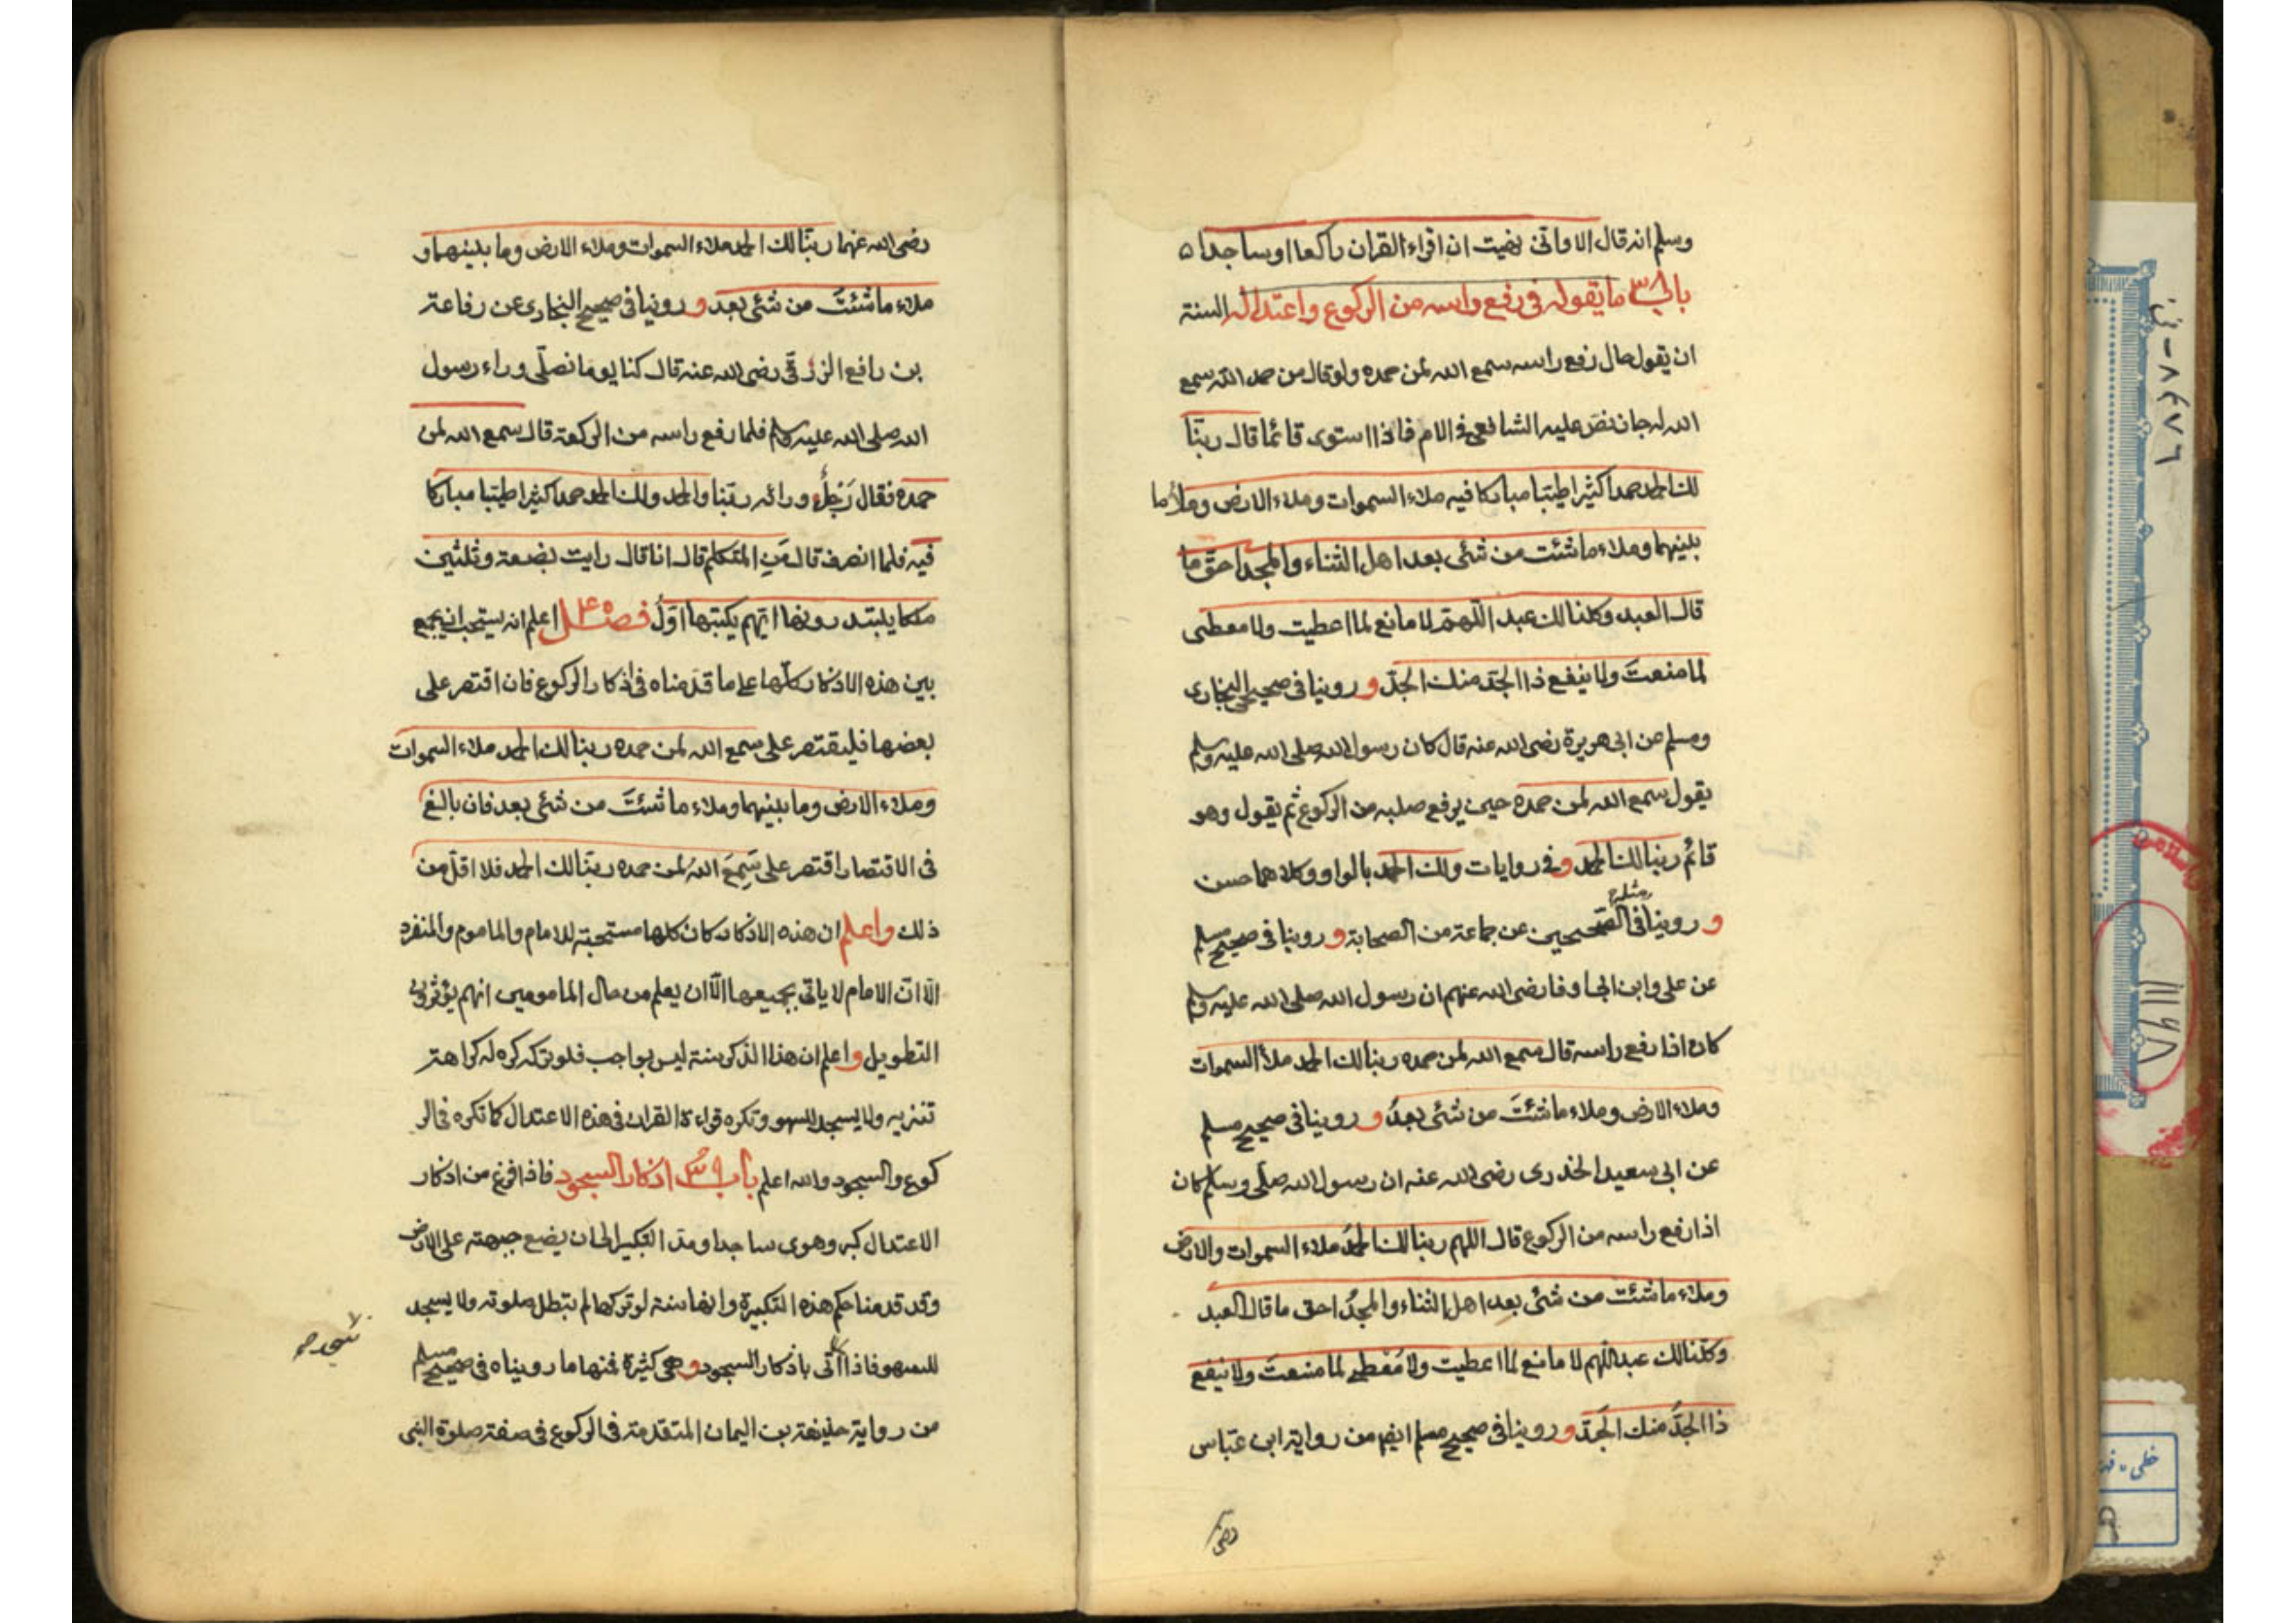 وسلم انه قال الا وانى نهيت ان اقراء القران راكعا اوساجدا ۵
باب ٣٨ ما يقوله فى رفع راسه من الركوع واعتداله السنة
ان يقول حال رفع راسه سمع الله لمن حمده ولو قال من حمد الله سمع
الله له جاز نص عليه الشافعى فى الام فاذا استوى قائما قال ربنا
لك الحمد حمدا كثيرا طيبا مباركا فيه ملاء السموات وملاء الارض وملأ ما
بينهما وملاء ما شئت من شئى بعد اهل الثناء والمجد احق ما
قال العبد وكلنا لك عبد اللهم لا مانع لما اعطيت ولا معطى
لما منعت ولا ينفع ذا الجد منك الجد و روينا فى صحيحى البخارى
ومسلم عن ابى هريرة رضى الله عنه قال كان رسول الله صلى الله عليه وسلم
يقول سمع الله لمن حمده حين يرفع صلبه من الركوع ثم يقول وهو
قائم ربنا لك الحمد و فى روايات ولك الحمد بالواو وكلاهما حسن
و روينا مثله فى الصحيحين عن جماعة من الصحابة و روينا فى صحيح مسلم
عن على وابن ابى اوفا رضى الله عنهم ان رسول الله صلى الله عليه وسلم
كان اذا رفع راسه قال سمع الله لمن حمده ربنا لك الحمد ملأ السموات
وملاء الارض وملاء ما شئت من شئى بعد و روينا فى صحيح مسلم
عن ابى سعيد الخدرى رضى الله عنه ان رسول الله صلى وسلم كان
اذا رفع راسه من الركوع قال اللهم ربنا لك الحمد ملاء السموات والارض
وملاء ما شئت من شئى بعد اهل الثناء والمجد احق ما قال العبد
وكلنا لك عبد اللهم لا مانع لما اعطيت ولا معطى لما منعت ولا ينفع
ذا الجد منك الجد و روينا فى صحيح مسلم ايضا من رواية ابن عباس
رضى
رضى الله عنهما ربنا لك الحمد ملاء السموات وملاء الارض وما بينهما و
ملاء ما شئت من شئى بعد و روينا فى صحيح البخارى عن رفاعة
بن رافع الزرقى رضى الله عنه قال كنا يوما نصلى وراء رسول
الله صلى الله عليه وسلم فلما رفع راسه من الركعة قال سمع الله لمن
حمده فقال رجل ورائه ربنا ولك الحمد حمدا كثيرا طيبا مباركا
فيه فلما انصرف قال من المتكلم قال انا قال رايت بضعة وثلثين
ملكا يبتدرونها ايهم يكتبها اول فصل اعلم انه يستحب ان يجمع
بين هذه الاذكار كلها على ما قدمناه فى اذكار الركوع فان اقتصر على
بعضها فليقتصر على سمع الله لمن حمده ربنا لك الحمد ملاء السموات
وملاء الارض وما بينهما وملاء ما شئت من شئى بعد فان بالغ
فى الاقتصار اقتصر على سمع الله لمن حمده ربنا لك الحمد فلا اقل من
ذلك واعلم ان هذه الاذكار كلها مستحبة للامام والماموم والمنفرد
الا ان الامام لا ياتى بجميعها الا ان يعلم من حال المامومين انهم يؤثرون
التطويل واعلم ان هذا الذكر سنة ليس بواجب فلو تركه كره له كراهة
تنزيه ولا يسجد للسهو وتكره قراءة القران فى هذه الاعتدال كما تكره فى الر
كوع والسجود والله اعلم باب ٣٩ اذكار السجود فاذا فرغ من اذكار
الاعتدال كبر وهوى ساجدا ومد التكبير الى ان يضع جبهته على الارض
وقد قدمنا حكم هذه التكبيرة وانها سنة لو تركها لم تبطل صلوته ولا يسجد
للسهو فاذا اتى باذكار السجود و هى كثيرة فمنها ما روينا فى صحيح مسلم
من رواية حذيفة بن اليمان المتقدمة فى الركوع فى صفة صلوة النبى